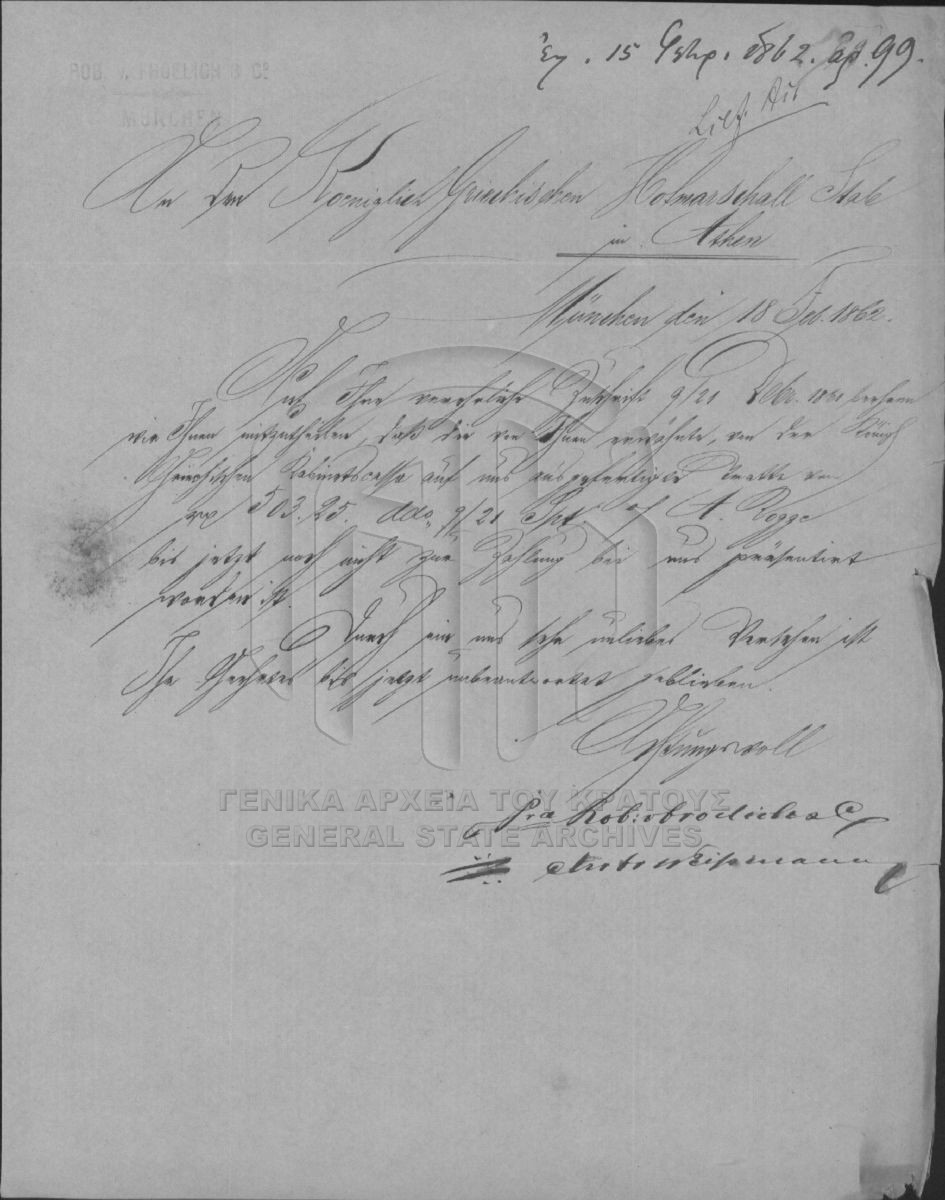 Ἐλ. 15 Φεβρ. 1862. Ἀρ. 99.
ROB. v. FROELICH & Cº
MÜNCHEN
An den Koeniglich Griechischen Hofmarschall Stab
in Athen
München den 18 Feb. 1862.
Auf Ihre verehrliche Zuschrift 9/21 Dbr. 1861 beehren
wir Ihnen mitzutheilen, daß die von Ihnen erwähnte, von der Königl
Griechischen Kabinetscasse auf uns ausgefertigte Tratte von
503.25. ddo 9/21 Spt. of A. Rogge
bis jetzt noch nicht zur Zahlung bei uns präsentirt
worden ist.
Durch ein uns sehr unliebes Versehen ist
Ihr Geehrtes bis jetzt unbeantwortet geblieben.
Achtungsvoll
pra Rob. v Froelich & C
ΓΕΝΙΚΑ ΑΡΧΕΙΑ ΤΟΥ ΚΡΑΤΟΥΣ
GENERAL STATE ARCHIVES
Weißmann